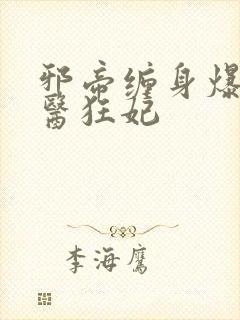 邪帝缠身爆
醫狂妃
李海鹰